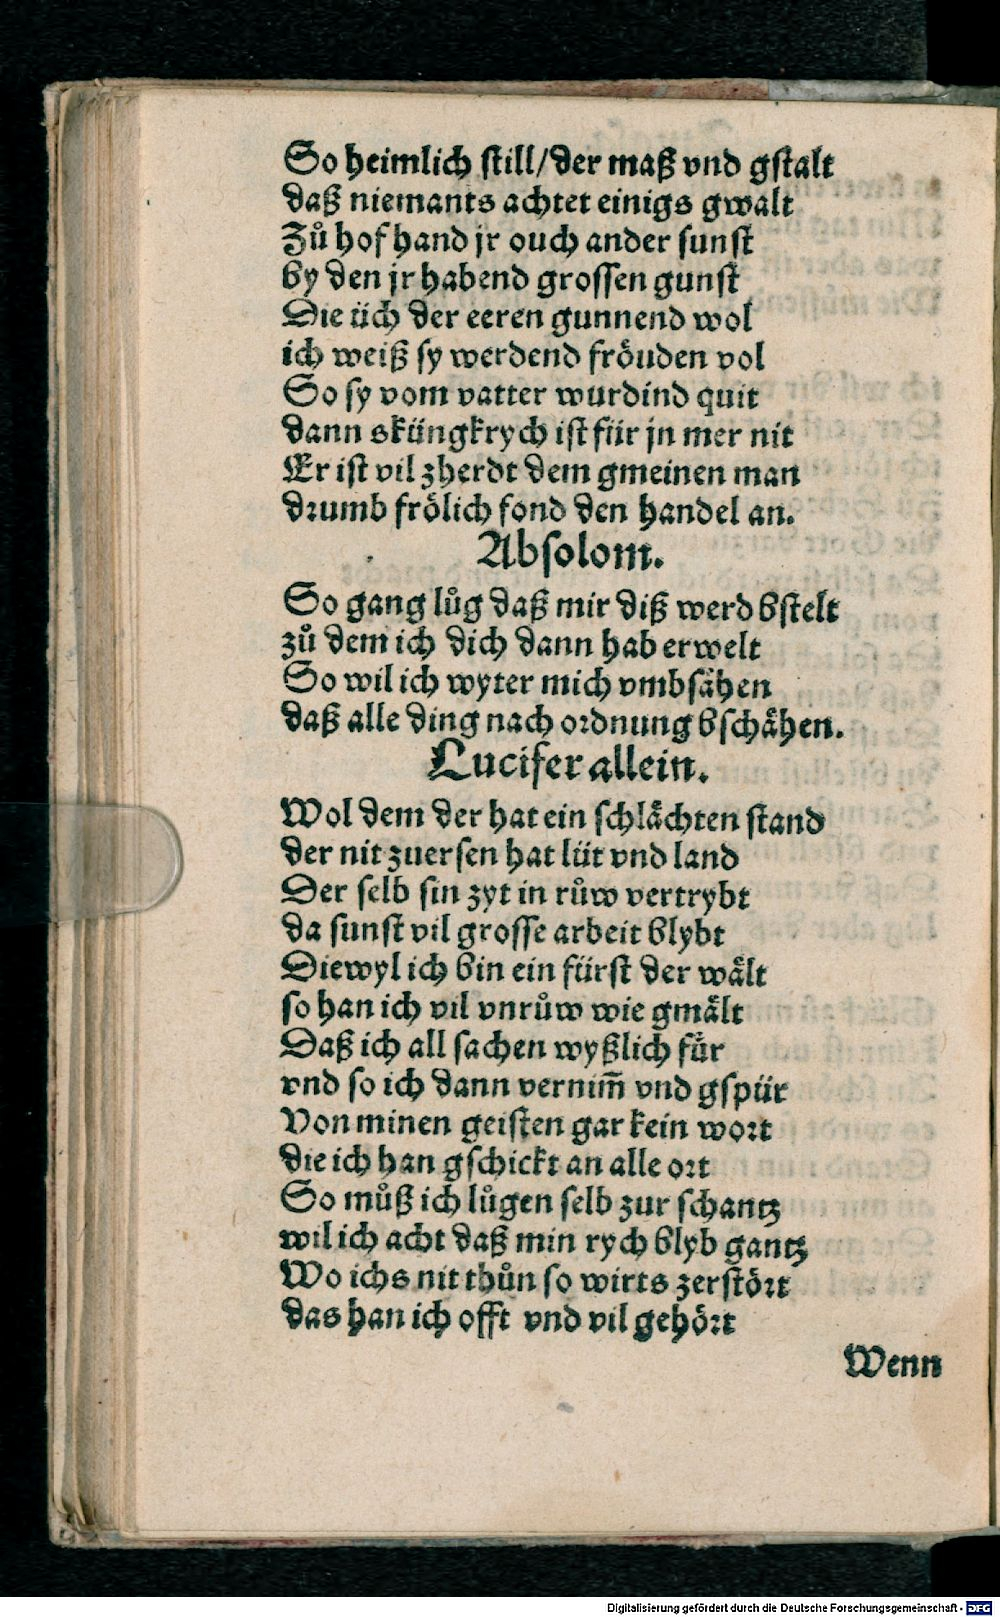 So heimlich still/der maß vnd gstalt
daß niemants achtet einigs gwalt
Zů hof hand jr ouch ander sunst
by den jr habend grossen gunst
Die üch der eeren gunnend wol
ich weiß sy werdend fröuden vol
So sy vom vatter wurdind quit
dann sküngkrych ist für jn mer nit
Er ist vil zherdt dem gmeinen man
drumb frölich fond den handel an.
Absolom.
So gang lůg daß mir diß werd bstelt
zů dem ich dich dann hab erwelt
So wil ich wyter mich vmbsähen
daß alle ding nach ordnung bschähen.
Lucifer allein.
Wol dem der hat ein schlächten stand
der nit zuersen hat lüt vnd land
Der selb sin zyt in růw vertrybt
da sunst vil grosse arbeit blybt
Diewyl ich bin ein fürst der wält
so han ich vil vnrůw wie gmält
Daß ich all sachen wyßlich für
vnd so ich dann vernim̃ vnd gspür
Von minen geisten gar kein wort
die ich han gschickt an alle ort
So můß ich lůgen selb zur schantz
wil ich acht daß min rych blyb gantz
Wo ichs nit thůn so wirts zerstört
das han ich offt vnd vil gehört
Wenn
Digitalisierung gefördert durch die Deutsche Forschungsgemeinschaft - DFG